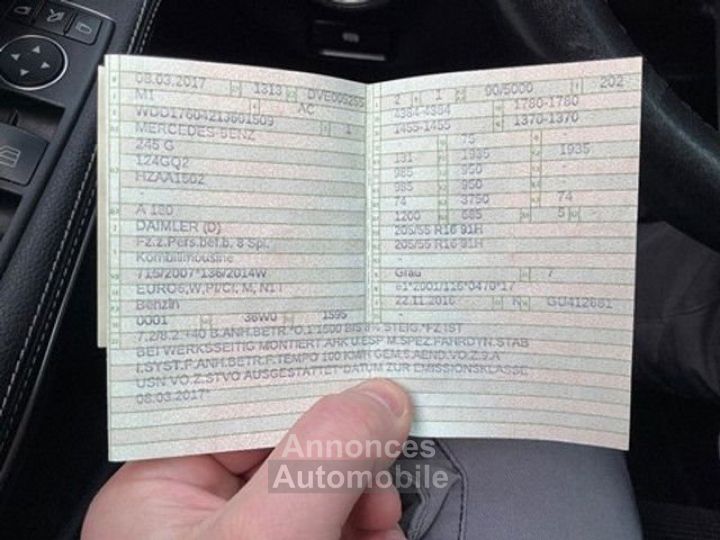 08.03.2017 1313 DVE005255
M1 AC
WDD1760421J601509 1
MERCEDES-BENZ
245 G
124GQ2
HZAA1502
-
A 180
DAIMLER (D)
Fz.z.Pers.bef.b. 8 Spl.
Kombilimousine
715/2007*136/2014W
EURO6,W,PI/CI, M, N1 I
Benzin
0001 36W0 1595
2 1 90/5000 202
4384-4384 1780-1780
1455-1455 1370-1370
- 75 -
131 1935 1935
985 950 -
985 950 -
74 3750 74
1200 685 5 -
205/55 R16 91H
205/55 R16 91H
-
Grau 7
e1*2001/116*0470*17
22.11.2016 K GU412881
7.2/8.2:+40 B.ANH.BETR.*O.1:1500 BIS 8% STEIG.*FZ.IST
BEI WERKSSEITIG MONTIERT.ARK U.ESP M.SPEZ.FAHRDYN.STAB
I.SYST.F.ANH.BETR.F.TEMPO 100 KM/H GEM.9.AEND.VO.Z.9.A
USN.VO.Z.STVO AUSGESTATTET*DATUM ZUR EMISSIONSKLASSE:
08.03.2017*
Annonces
Automobile